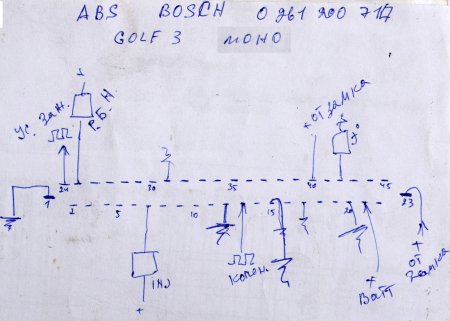 ABS BOSCH 0 261 200 717
GOLF 3 МОНО
Ус. Заж.
Р.Б.Н.
+ от замка
t°
24 30 35 40 45
1 2 5 10 15 20 23
INJ
+
колен.
+
Ватт
+
от
замка